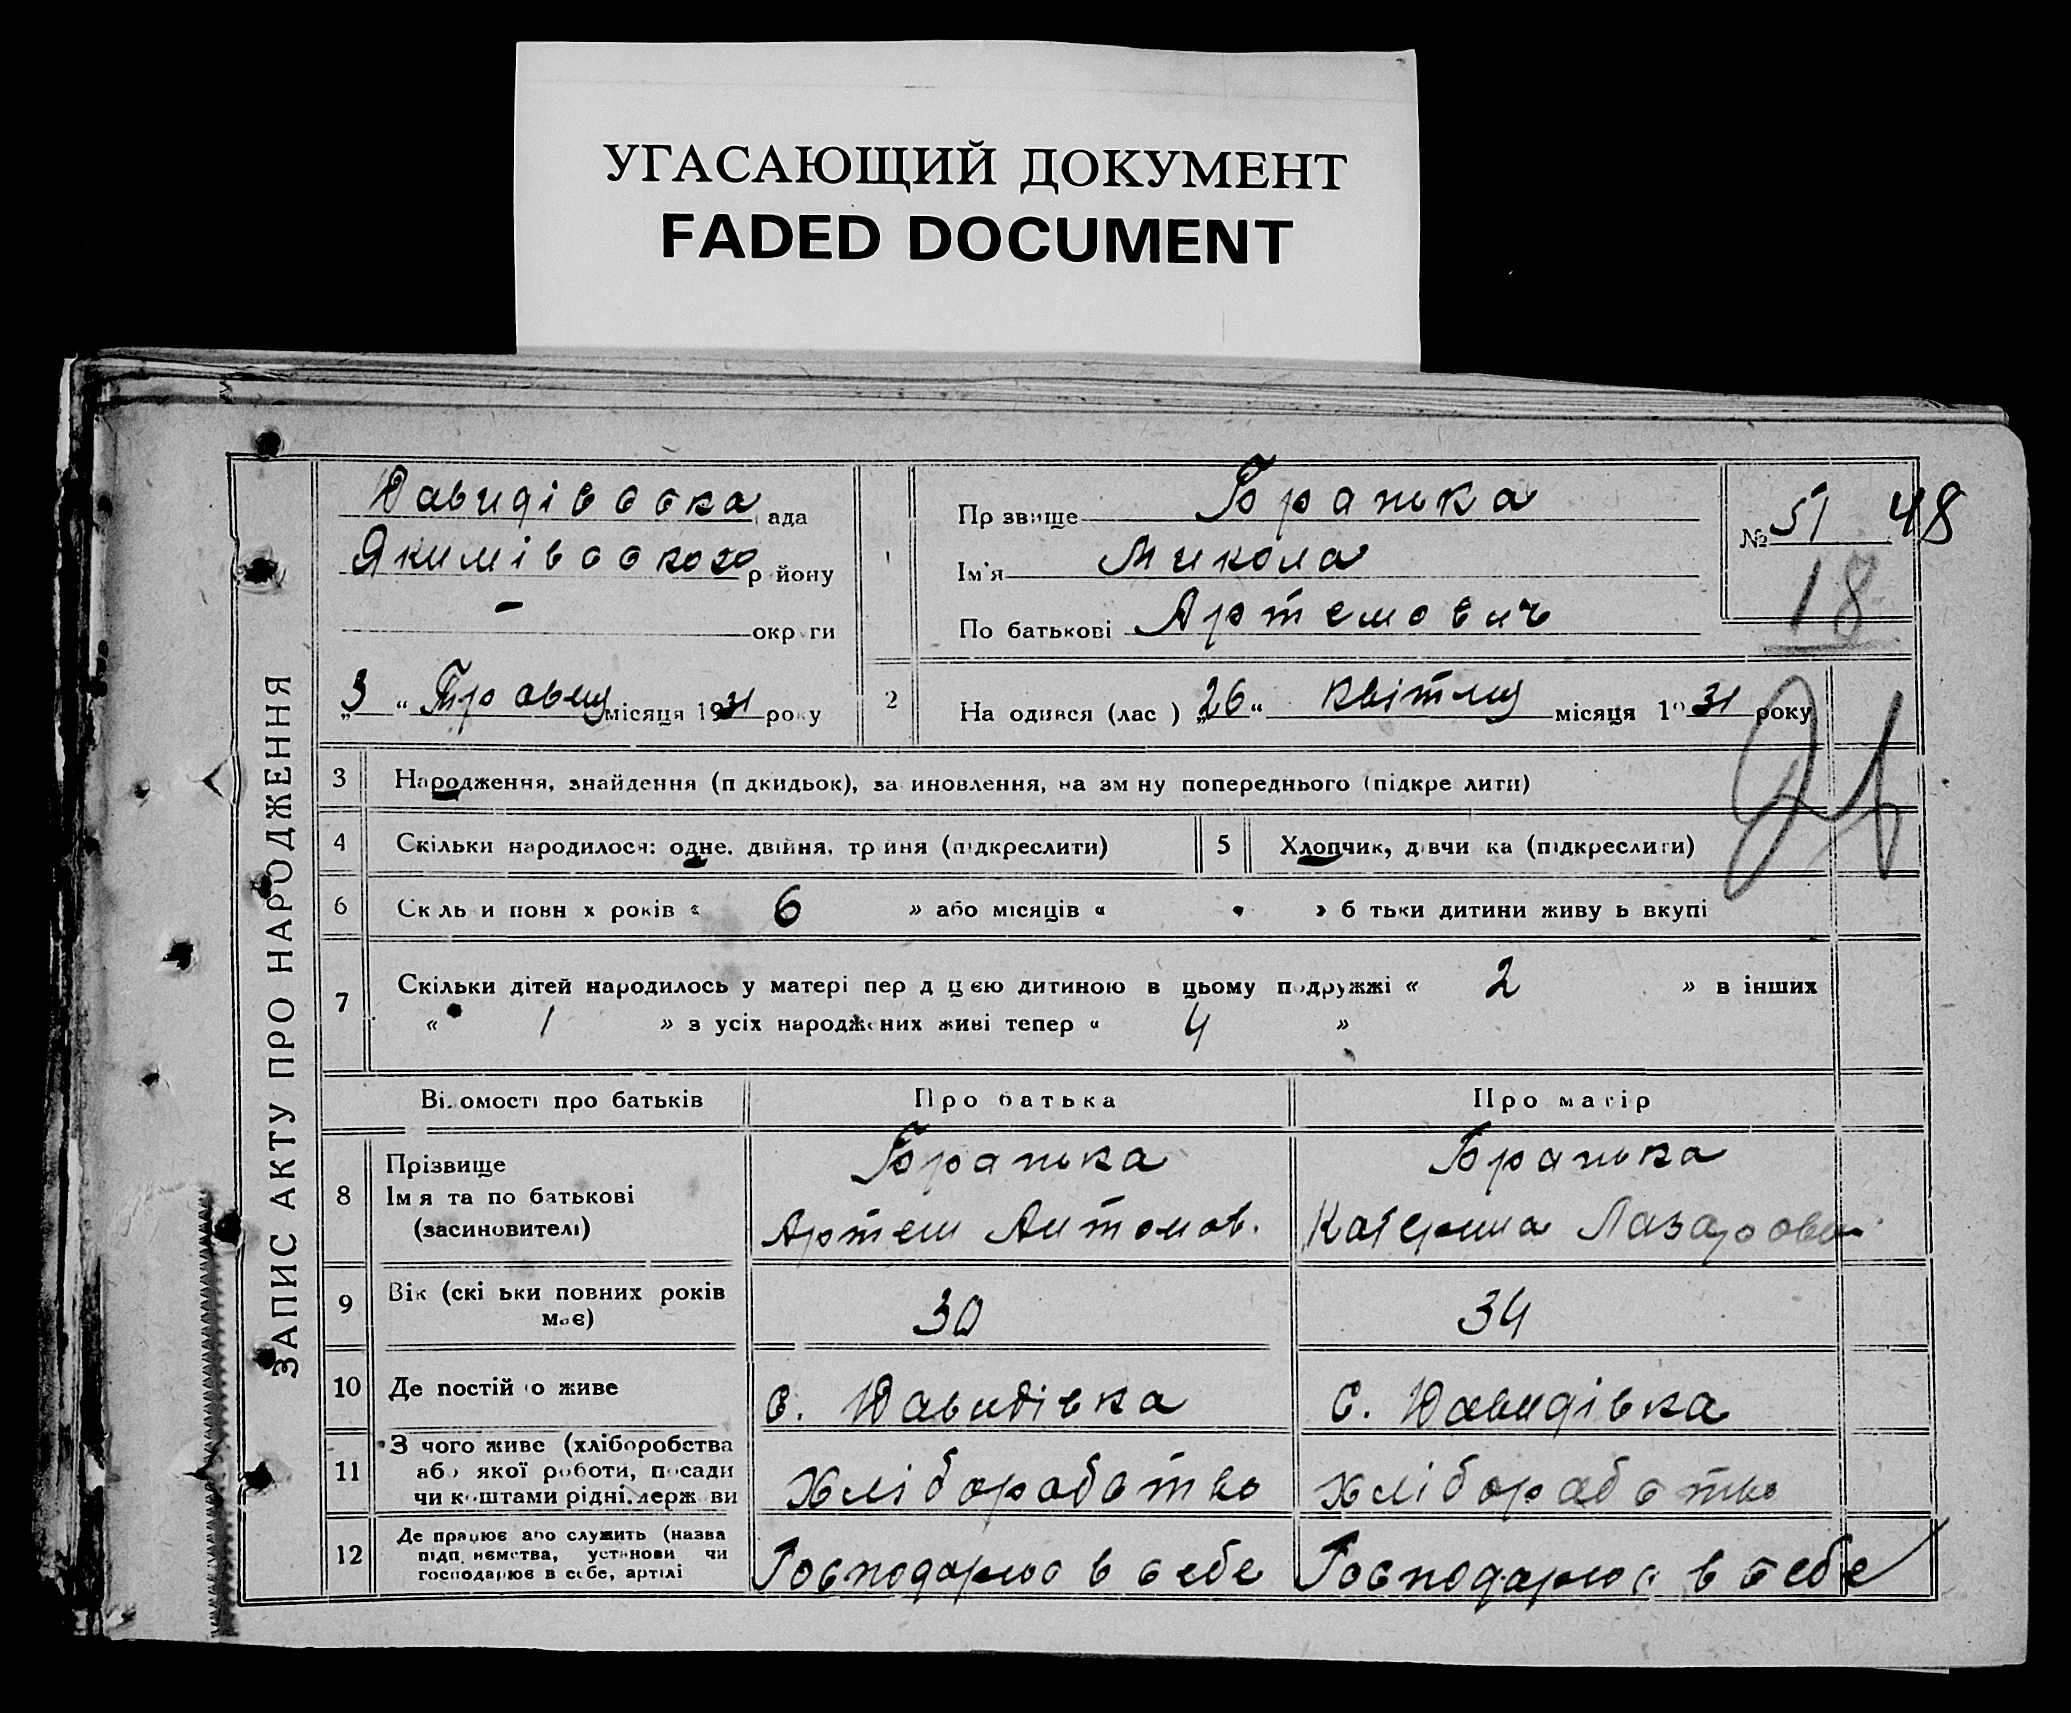 УГАСАЮЩИЙ ДОКУМЕНТ
FADED DOCUMENT
ЗАПИС АКТУ ПРО НАРОДЖЕННЯ
Давидівсвка ада
Якимівського р йону
— окр ги
„3“ Травня місяця 1931 року
1
Пр звище Братка
Ім'я Микола
По батькові Артемович
№ 51 48
18
2 На одився (лас ) „26“ Квітня місяця 1931 року
3 Народження, знайдення (п дкидьок), за иновлення, на зм ну попереднього (підкре лити)
4 Скільки народилося: одне, двійня, тр йня (підкреслити) 5 Хлопчик, дівчи ка (підкреслити)
6 Ск ль и повн х років « 6 » або місяців « » б тьки дитини живу ь вкупі
7 Скільки дітей народилось у матері пер д цією дитиною в цьому подружжі « 2 » в інших
« 1 » з усіх народжених живі тепер « 4 »
Ві омості про батьків Про батька Про матір
8 Прізвище Братка Братка
Ім я та по батькові
(засиновителі) Артем Антонов. Катерина Лазаровна
9 Вік (скі ьки повних років
має) 30 34
10 Де постій о живе с. Давидівка с. Давидівка
11 З чого живе (хліборобства
або якої роботи, посади
чи коштами рідні, держ ви Хліборобство Хліборобство
12 Де працює або служить (назва
підп иємства, установи чи
господарює в себе, артілі Господарює в себе Господарює в себе